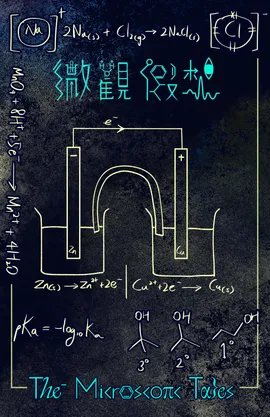 [Na]⁺ 2Na(s) + Cl₂(g) → 2NaCl(s) [Cl]⁻
微觀傳枈
MnO₄⁻ + 8H⁺ + 5e⁻ → Mn²⁺ + 4H₂O
e⁻
− +
Zn Cu
Zn(s) → Zn²⁺ + 2e⁻ | Cu²⁺ + 2e⁻ → Cu(s)
pKa = −log₁₀ Ka
OH OH OH
3° 2° 1°
The Microscopic Tales